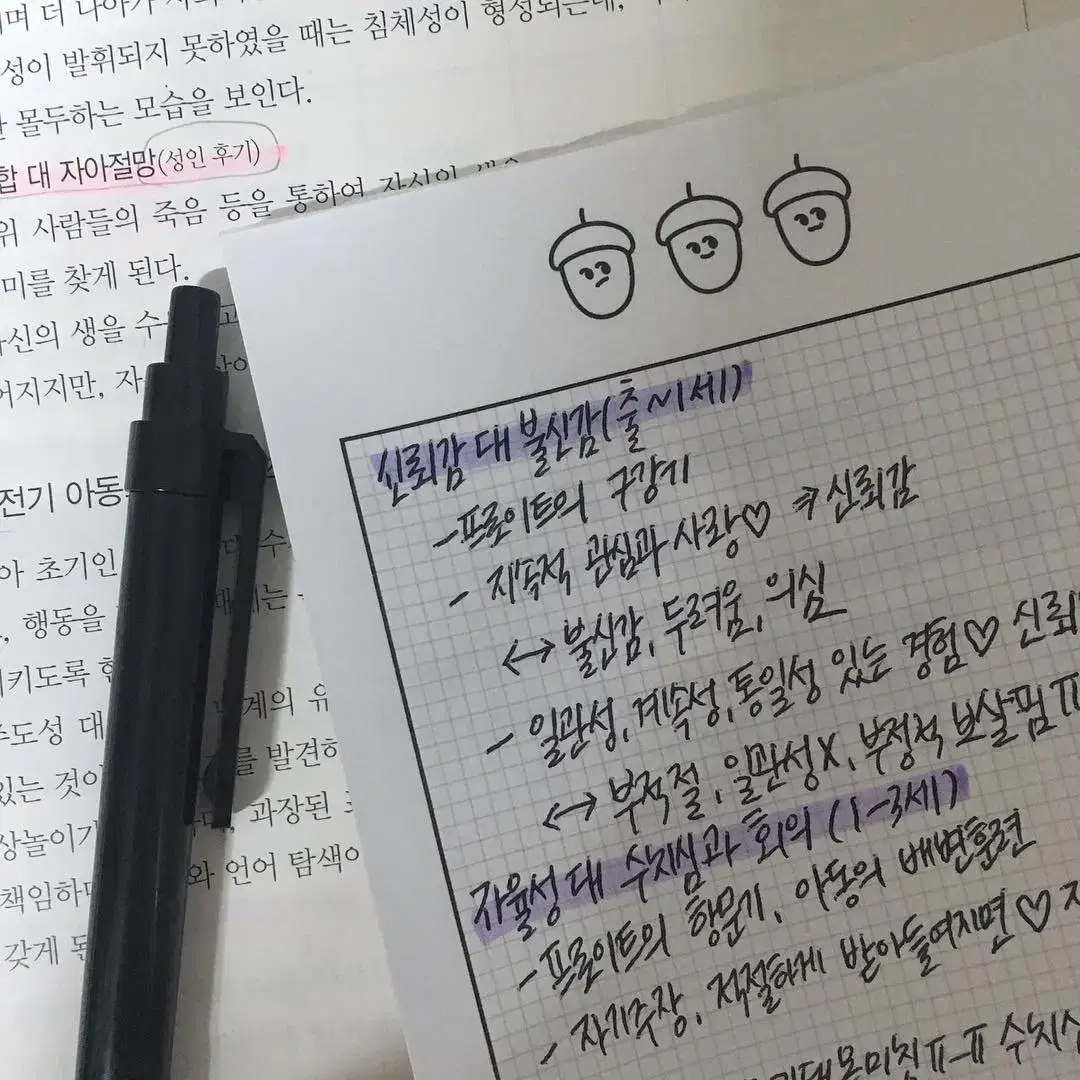 며 더 나아가
성이 발휘되지 못하였을 때는 침체성이 형성되는데,
몰두하는 모습을 보인다.
합 대 자아절망(성인 후기)
위 사람들의 죽음 등을 통하여 자신의
미를 찾게 된다.
자신의 생을 수
어지지만,
전기 아동
아 초기인
행동을
키도록
주도성 대 단계의 유
있는 것이 를 발견하
상놀이가 과장된
책임하며 와 언어 탐색
갖게 된
신뢰감 대 불신감(출~1세)
-프로이트의 구강기
- 지속적 관심과 사랑♡ ⇒신뢰감
↔ 불신감, 두려움, 의심
- 일관성, 계속성, 통일성 있는 경험♡ 신뢰
↔ 부적절, 일관성X, 부정적 보살핌ㅠ
자율성 대 수치심과 회의 (1-3세)
-프로이트의 항문기, 아동의 배변훈련
- 자기주장, 적절하게 받아들여지면♡
기대 못미침ㅠ_ㅠ 수치심